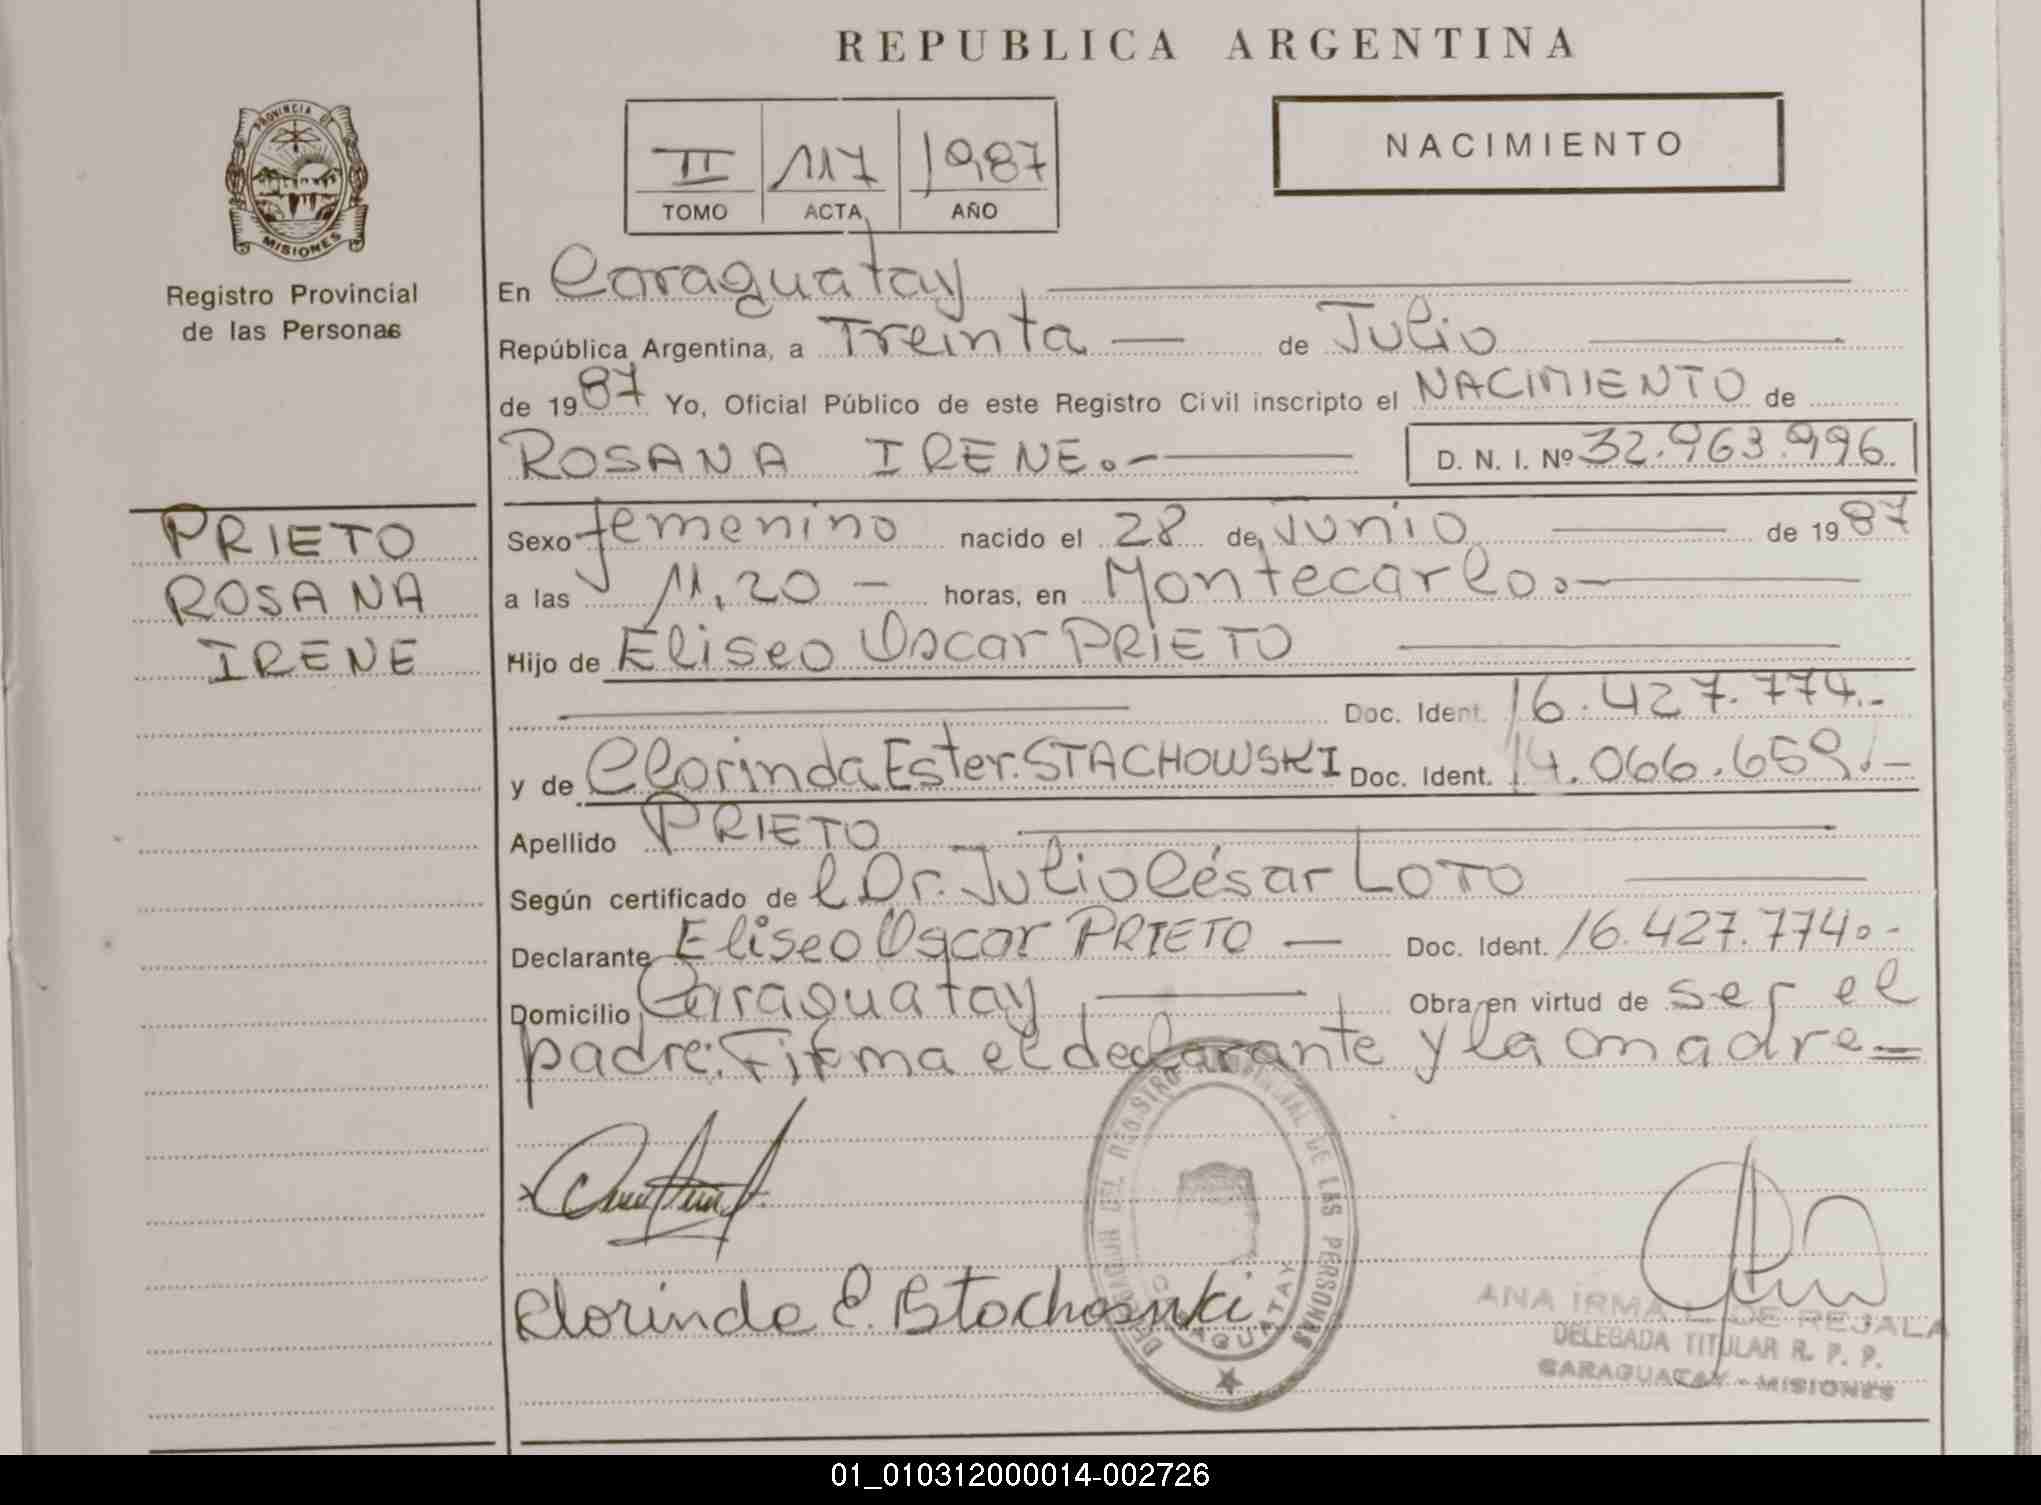 REPUBLICA ARGENTINA
PROVINCIA DE
MISIONES
Registro Provincial
de las Personas
II 117 1987
TOMO ACTA AÑO
NACIMIENTO
En Caraguatay
República Argentina, a Treinta — de Julio
de 1987 Yo, Oficial Público de este Registro Civil inscripto el NACIMIENTO de
ROSANA IRENE.- D. N. I. Nº 32.963.996
PRIETO
ROSANA
IRENE
Sexo femenino nacido el 28 de Junio de 1987
a las 11,20 — horas, en Montecarlo.-
Hijo de Eliseo Oscar PRIETO
Doc. Ident. 16.427.774.-
y de Clorinda Ester. STACHOWSKI Doc. Ident. 14.066.659.-
Apellido PRIETO
Según certificado de l Dr. Julio César LOTO
Declarante Eliseo Oscar PRIETO — Doc. Ident. 16.427.774.-
Domicilio Caraguatay Obra en virtud de ser el
padre: Firma el declarante y la madre=
DELEGACION DEL REGISTRO PROVINCIAL DE LAS PERSONAS
CARAGUATAY
Clorinda E. Stachowski
ANA IRMA L. DE REJALA
DELEGADA TITULAR R. P. P.
CARAGUATAY - MISIONES
01_010312000014-002726